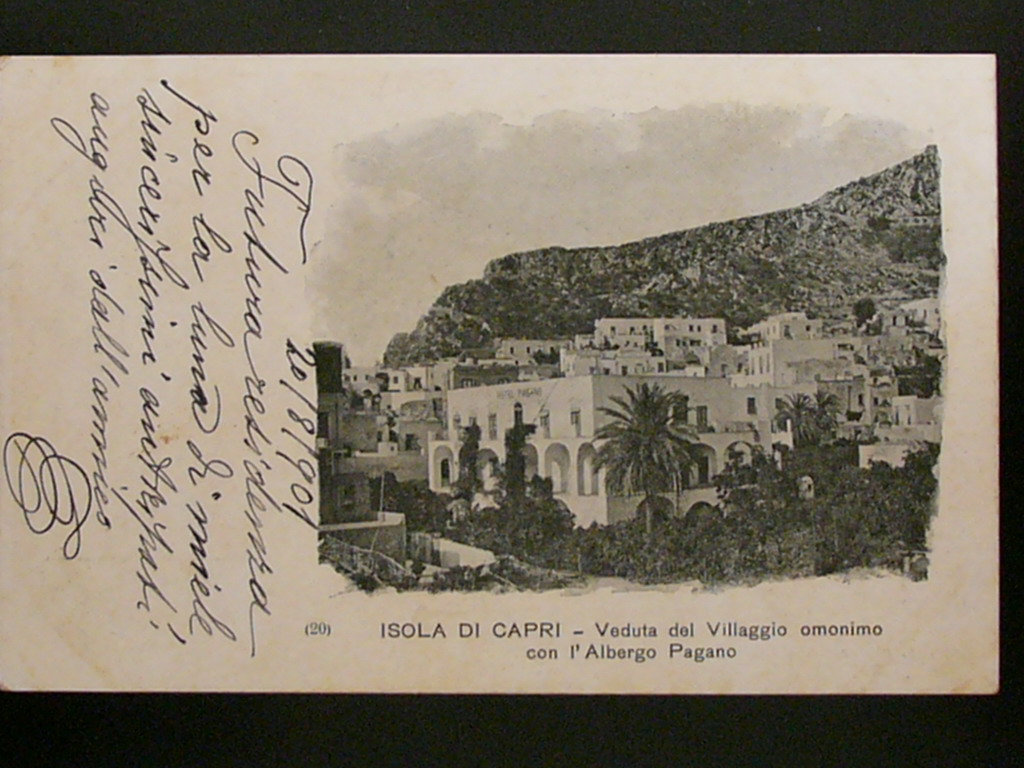 T. 20/8/901
Futura residenza
per la luna di miele
sincerissimi anticipati
auguri dall'amico
HOTEL PAGANO
(20) ISOLA DI CAPRI – Veduta del Villaggio omonimo
con l'Albergo Pagano